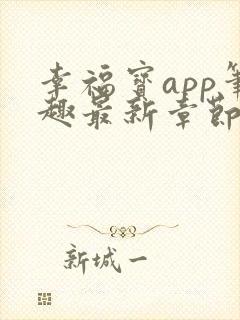 幸福宝app笔
趣最新章节
新城一